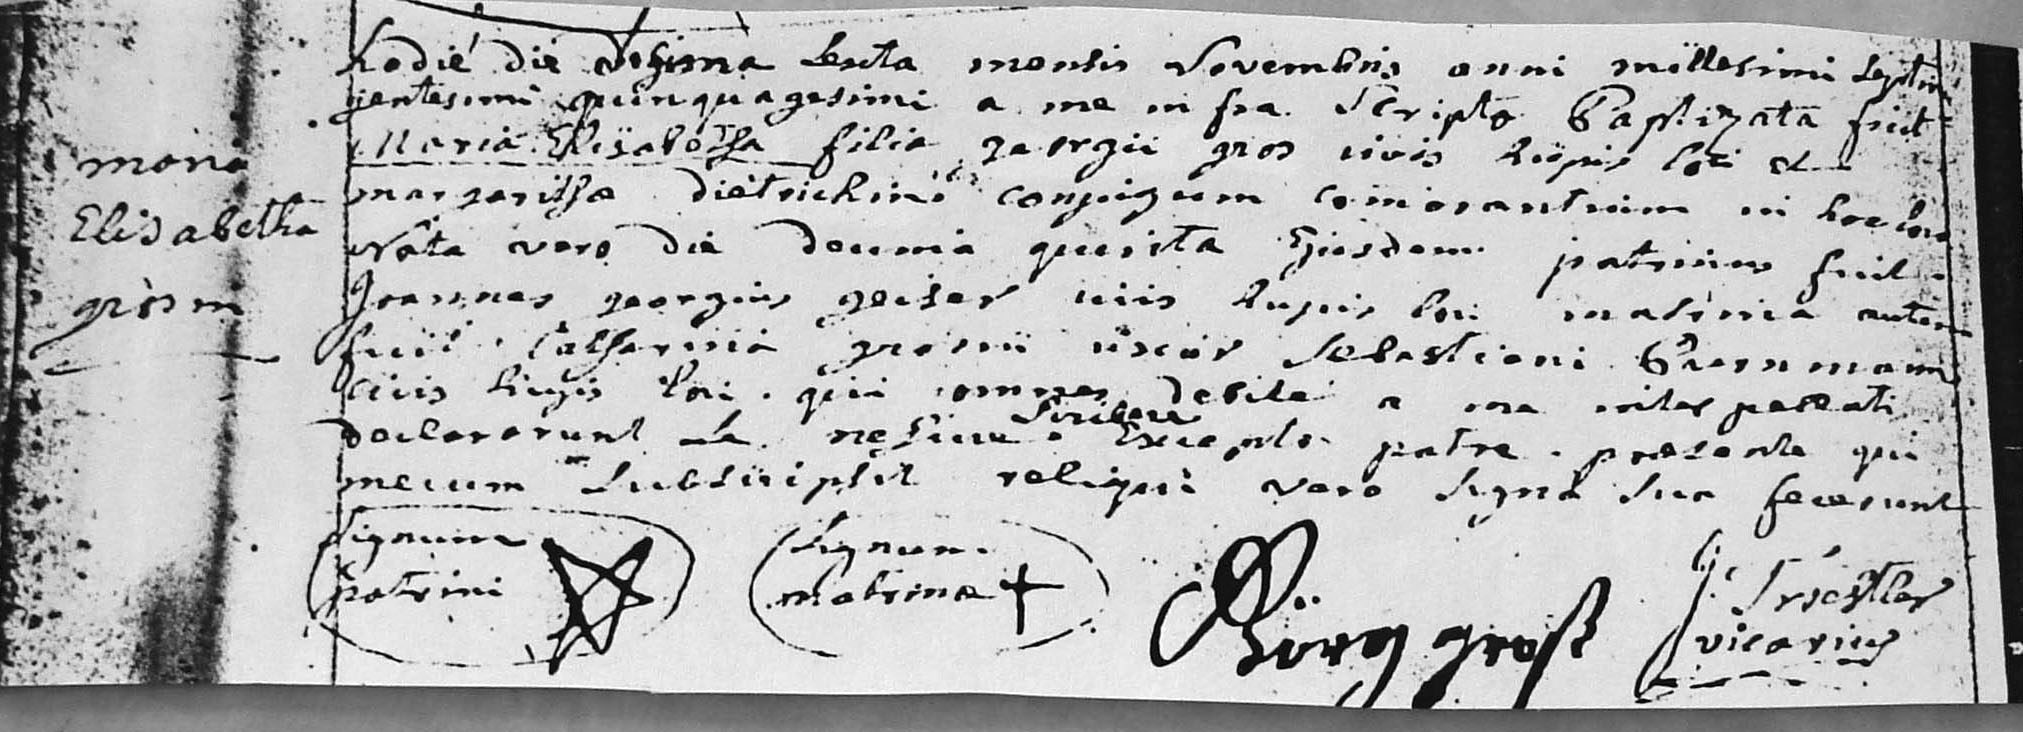 maria
Elisabetha
grosin
hodie die desima sexta mensis Novembris anni millesimi septin
gentesimi quinquagesimi a me infra scripto Baptizata fuit
Maria Elisabetha filia georgii gros civis hujus loci et
margarithae dietrichin conjugum comorantium in hoc loco
Nata vero die decima quinta Ejusdem patrinus fuit
Joannes georgius geiser civis hujus loci matrina autem
fuit Catharina grosin uxor Sebastiani
civis hujus loci qui omnes debite a me interpellati
declararunt se nescire scribere Excepto patre praesente qui
mecum subscripsit reliqui vero signa sua fecerunt
signum
patrini
signum
matrinae
Görg groß
vicarius